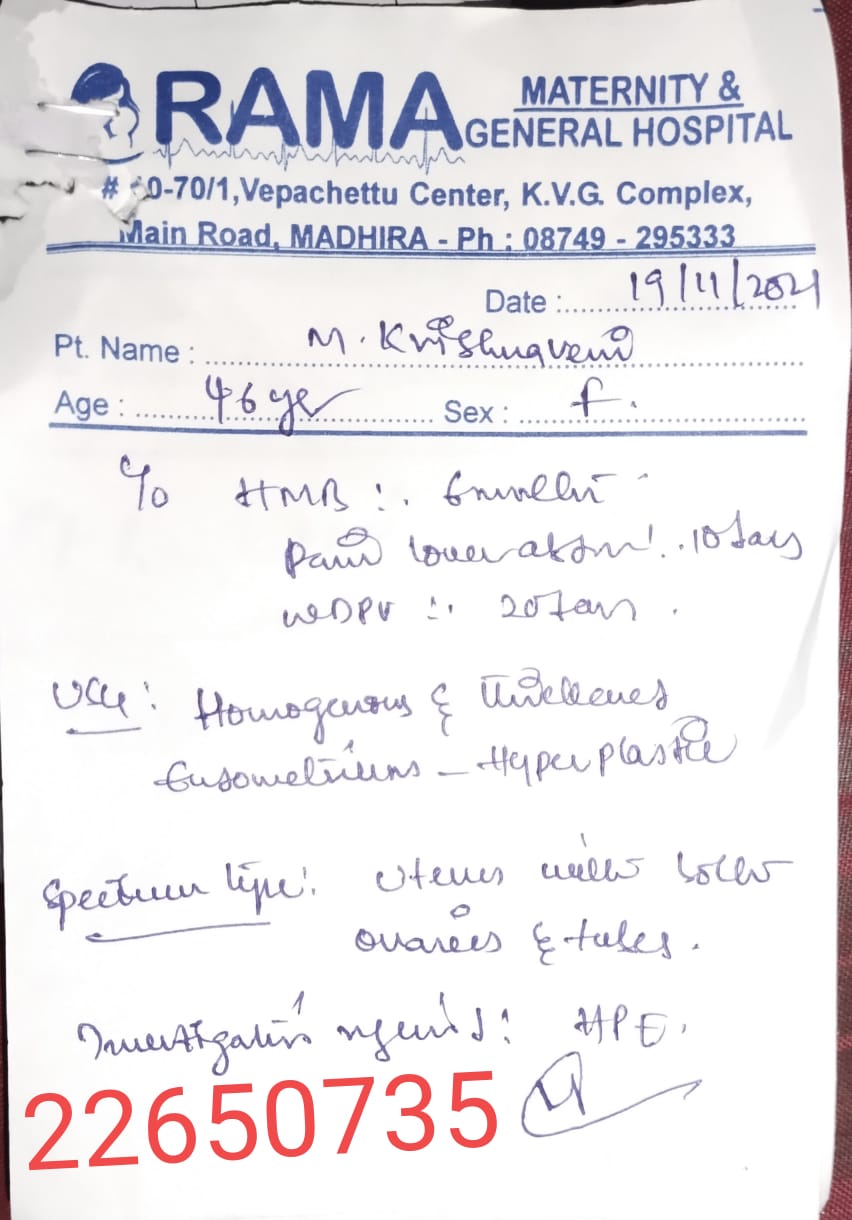 RAMA MATERNITY & GENERAL HOSPITAL
# 0-70/1,Vepachettu Center, K.V.G. Complex,
Main Road, MADHIRA - Ph : 08749 - 295333
Date : 19/11/2021
Pt. Name : M. Krishnaveni
Age : 46 yr Sex : f.
C/o HMB :.
Pain lower abdom :. 10 days
WDPV :. 20 days .
USG : Homogenous & thickened
Endometrium - Hyperplastic
Specimen type : Uterus with both
ovaries & tubes .
Investigation : HPE .
22650735